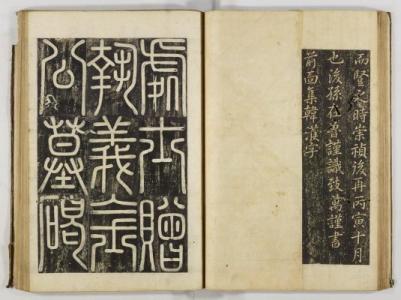 而豎之時崇禎後再丙寅十月
也後孫在普謹識致萬謹書
前面集韓濩字
處士贈
執義金
公墓碣